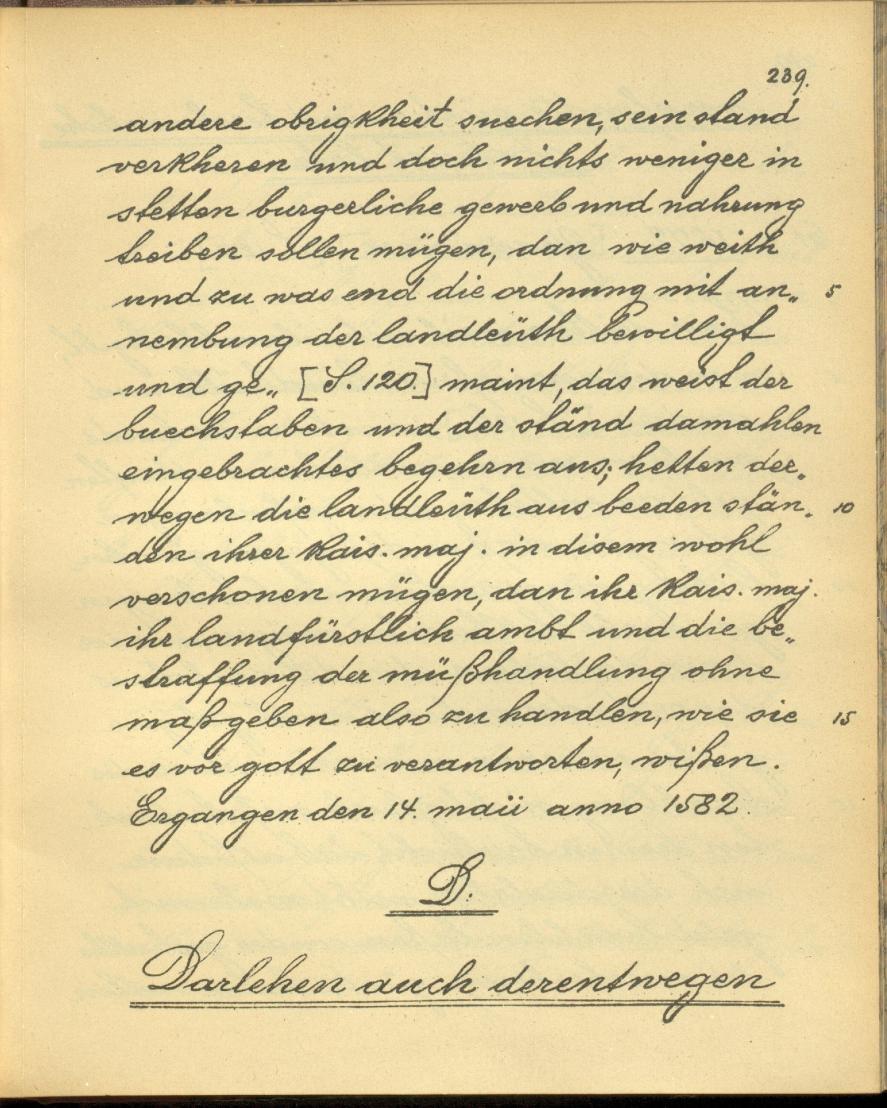 239.
andere obrigkheit suechen, sein stand
verkheren und doch nichts weniger in
stetten burgerliche gewerb und nahrung
treiben sollen mügen, dan wie weith
und zu was end die ordnung mit an„ 5
nembung der landleüth bewilligt
und ge„ [S. 120.] maint, das weist der
buechstaben und der ständ damahlen
eingebrachtes begehrn aus; hetten der„
wegen die landleüth aus beeden stän„ 10
den ihrer kais. maj. in disem wohl
verschonen mügen, dan ihr kais. maj.
ihr landfürstlich ambt und die be„
straffung der müßhandlung ohne
maßgeben also zu handlen, wie sie 15
es vor gott zu verantworten, wißen.
Ergangen den 14. maii anno 1582.
D.
Darlehen auch derentwegen